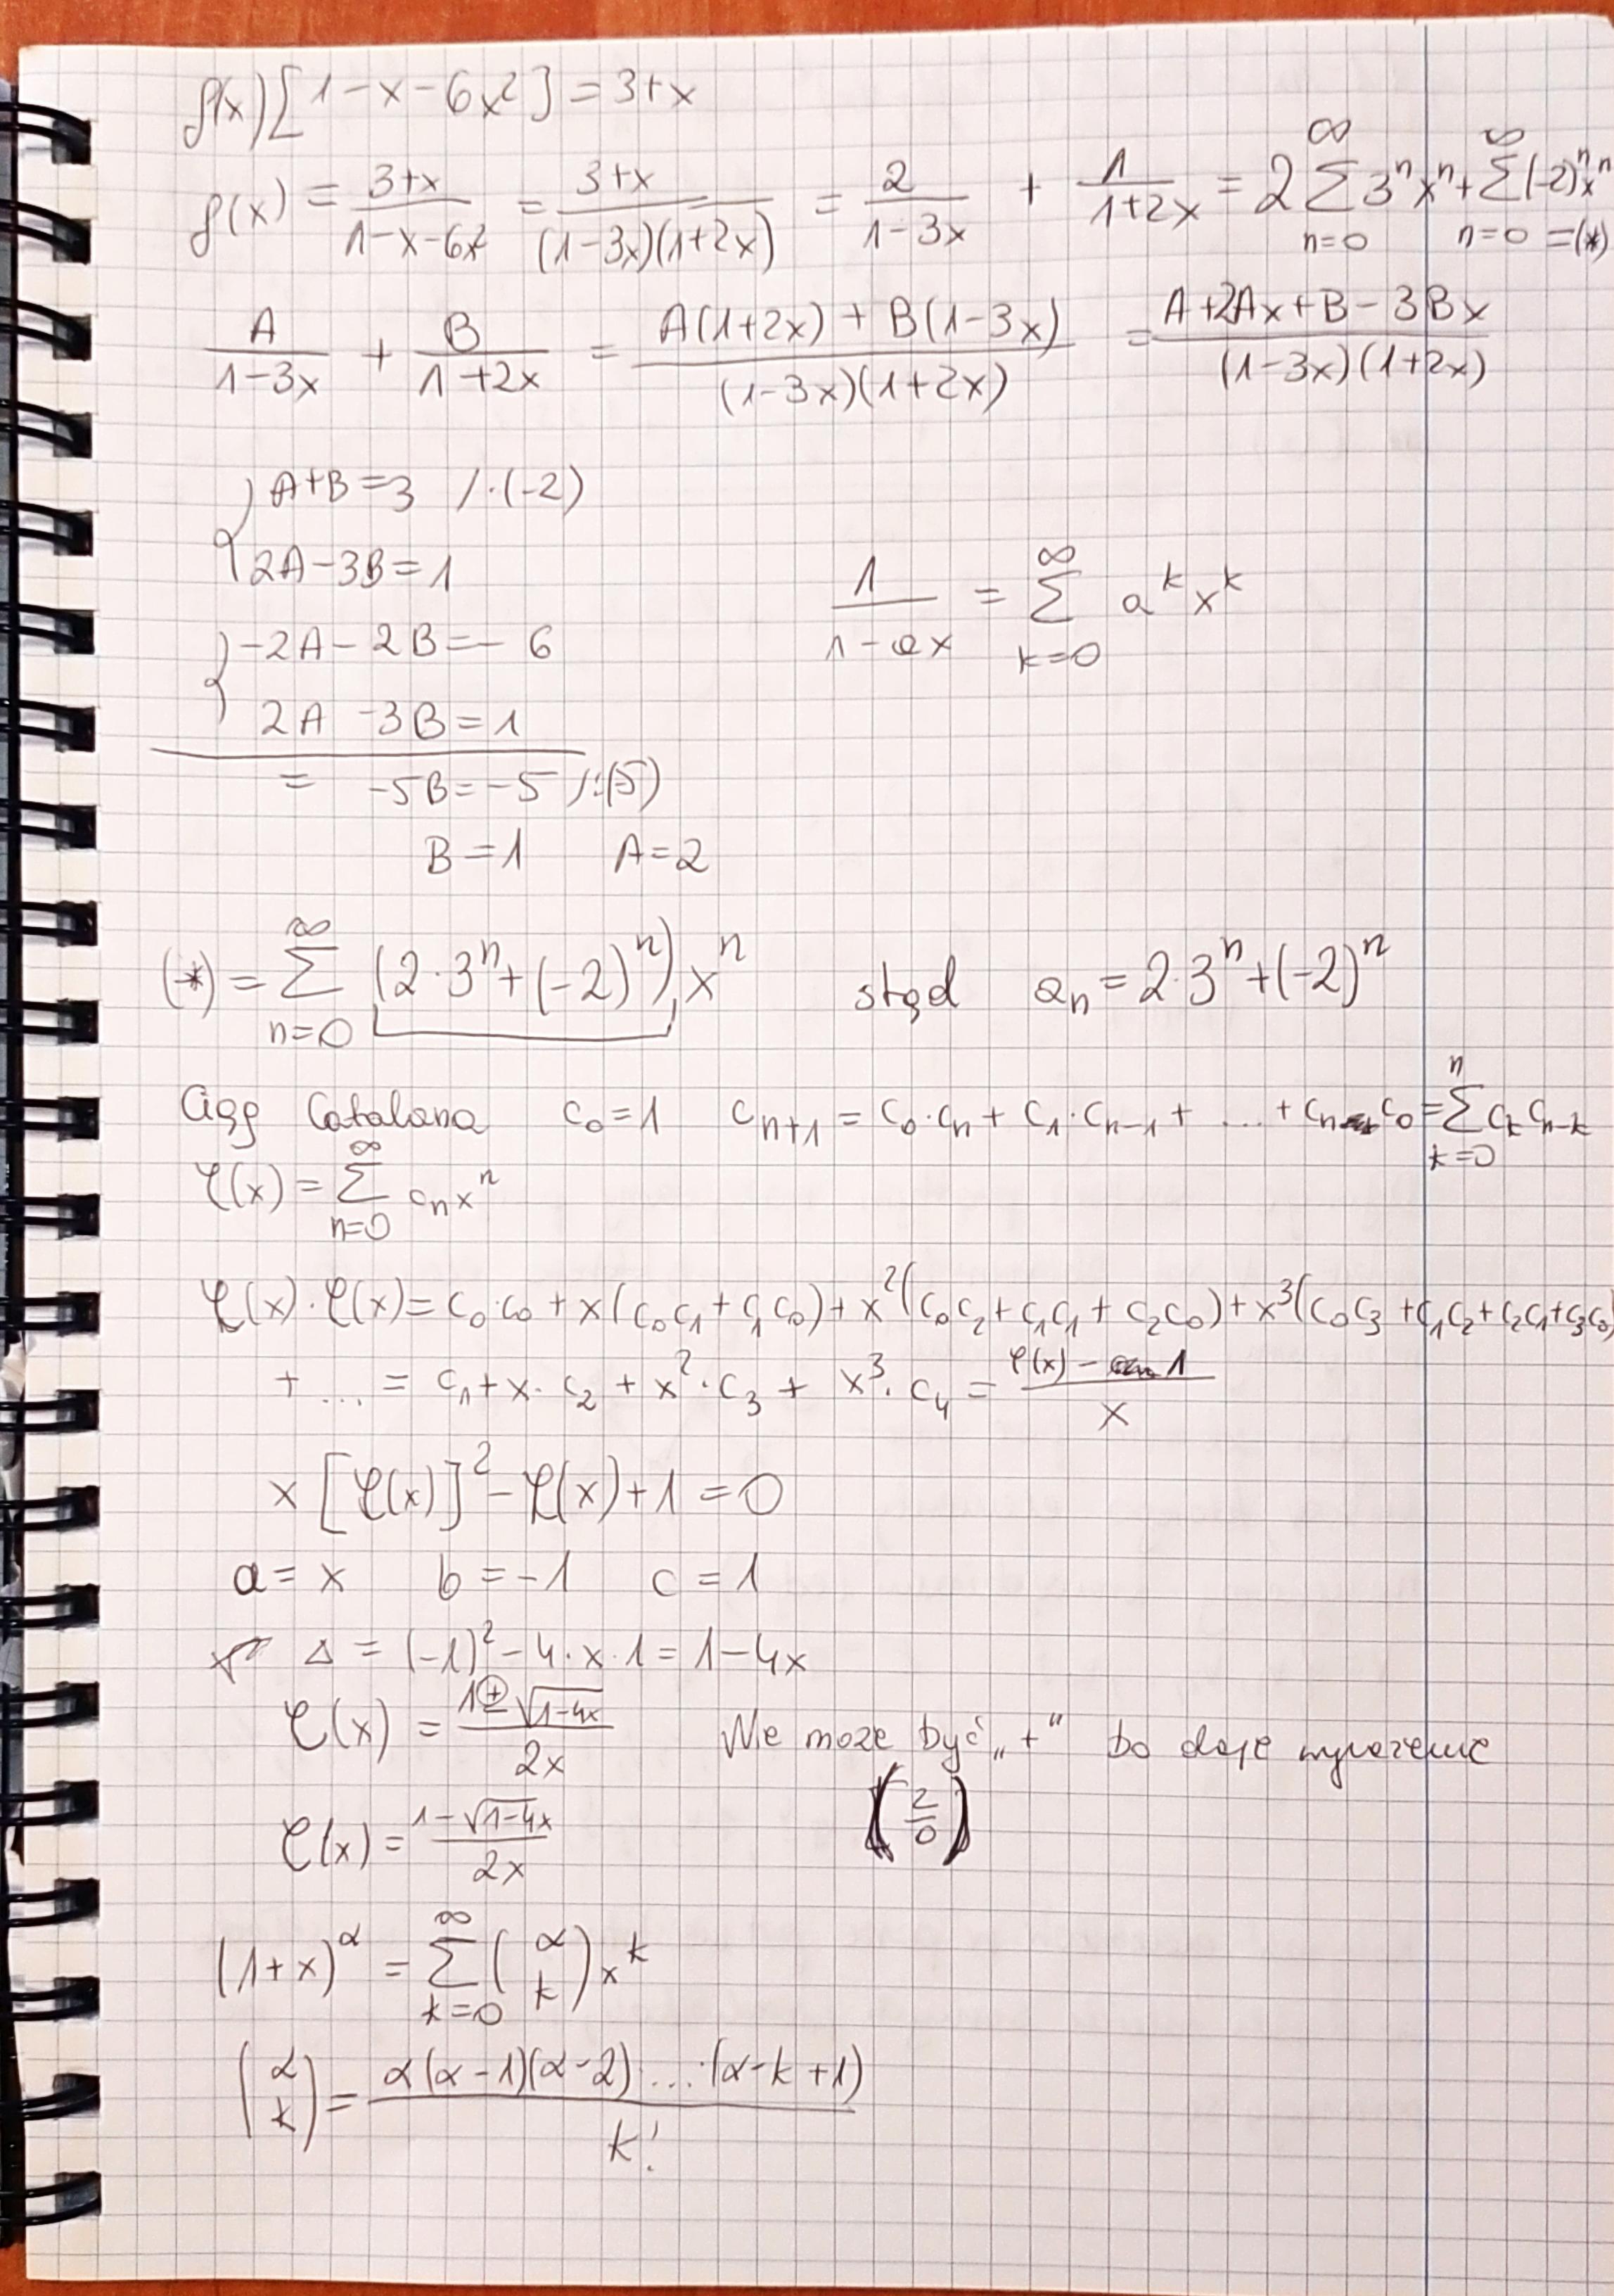 f(x)[1-x-6x²]=3+x
f(x) = \frac{3+x}{1-x-6x²} = \frac{3+x}{(1-3x)(1+2x)} = \frac{2}{1-3x} + \frac{1}{1+2x} = 2 \sum_{n=0}^{∞} 3^n x^n + \sum_{n=0}^{∞} (-2)^n x^n =(*)
\frac{A}{1-3x} + \frac{B}{1+2x} = \frac{A(1+2x) + B(1-3x)}{(1-3x)(1+2x)} = \frac{A+2Ax+B-3Bx}{(1-3x)(1+2x)}
A+B=3 /·(-2)
2A-3B=1
\frac{1}{1-ax} = \sum_{k=0}^{∞} a^k x^k
-2A-2B=-6
2A-3B=1
= -5B=-5 /:(-5)
B=1 A=2
(*) = \sum_{n=0}^{∞} (2·3^n+(-2)^n) x^n stąd a_n = 2·3^n+(-2)^n
Ciąg Catalana c_0=1 c_{n+1} = c_0·c_n + c_1·c_{n-1} + ... + c_n c_0 = \sum_{k=0}^{n} c_k c_{n-k}
φ(x) = \sum_{n=0}^{∞} c_n x^n
φ(x)·φ(x)= c_0·c_0 + x(c_0c_1+c_1c_0) + x²(c_0c_2+c_1c_1+c_2c_0) + x³(c_0c_3+c_1c_2+c_2c_1+c_3c_0)
+ ... = c_1+x·c_2 + x²·c_3 + x³·c_4 = \frac{φ(x)-1}{x}
x[φ(x)]² - φ(x)+1 = 0
a = x b = -1 c = 1
Δ = (-1)² - 4·x·1 = 1-4x
φ(x) = \frac{1±\sqrt{1-4x}}{2x} Nie może być „+" bo daje wyrażenie
(\frac{2}{0})
φ(x) = \frac{1-\sqrt{1-4x}}{2x}
(1+x)^α = \sum_{k=0}^{∞} \binom{α}{k} x^k
\binom{α}{k} = \frac{α(α-1)(α-2)·...·(α-k+1)}{k!}